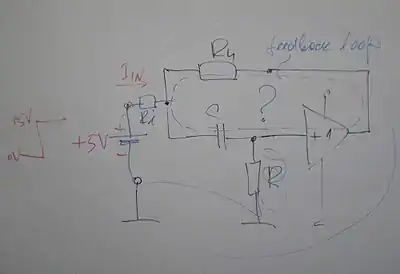 R4
feedback loop
I IN
R1
C
?
+1
+5V
+
-
0V
R